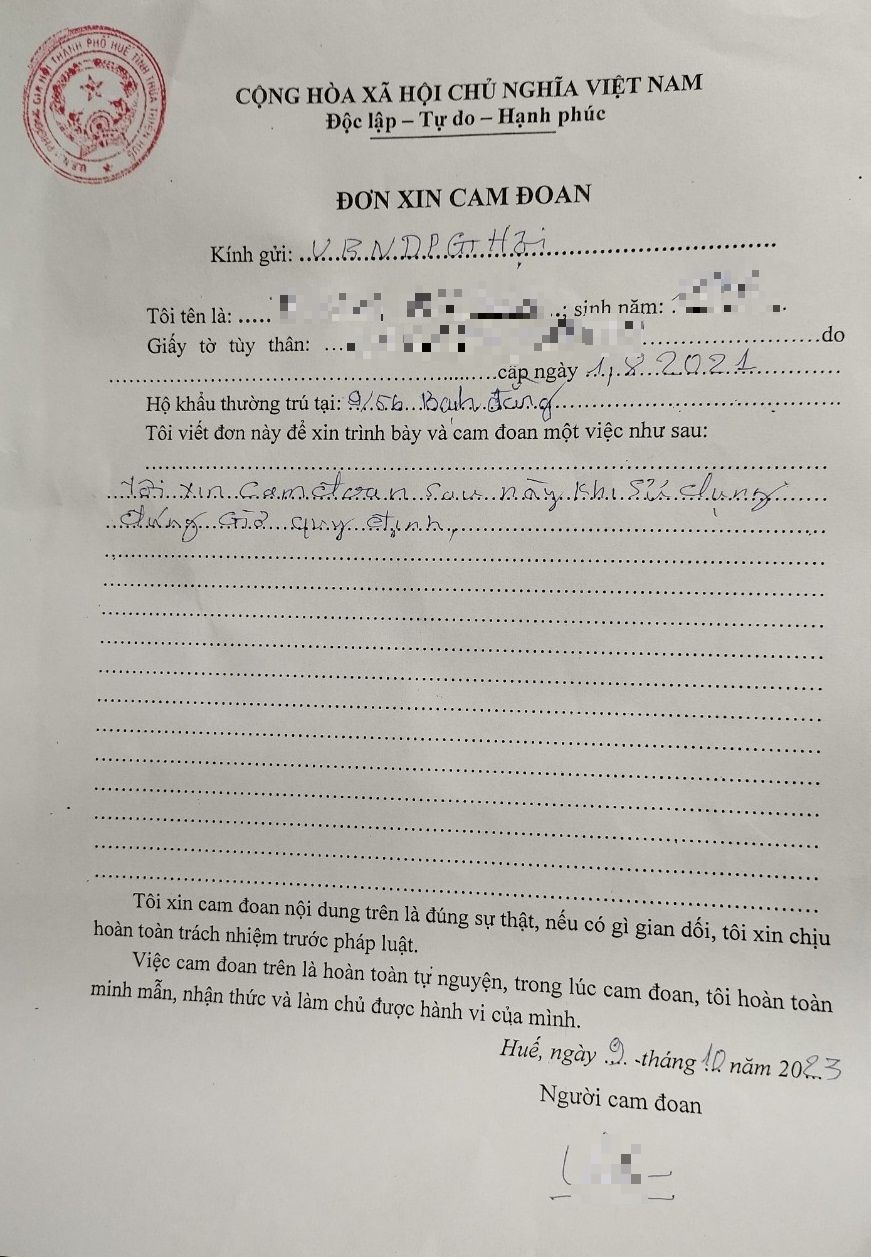 U.B.N.D PHƯỜNG GIA HỘI THÀNH PHỐ HUẾ TỈNH THỪA THIÊN HUẾ
CỘNG HÒA XÃ HỘI CHỦ NGHĨA VIỆT NAM
Độc lập – Tự do – Hạnh phúc
ĐƠN XIN CAM ĐOAN
Kính gửi: U B N D P G Hội
Tôi tên là: ; sinh năm:
Giấy tờ tùy thân: do
cấp ngày 1,8 2021
Hộ khẩu thường trú tại: 9/56 Bạch đằng
Tôi viết đơn này để xin trình bày và cam đoan một việc như sau:
tôi xin cam đoan sau này khi sử dụng
đúng giờ quy định,
Tôi xin cam đoan nội dung trên là đúng sự thật, nếu có gì gian dối, tôi xin chịu
hoàn toàn trách nhiệm trước pháp luật.
Việc cam đoan trên là hoàn toàn tự nguyện, trong lúc cam đoan, tôi hoàn toàn
minh mẫn, nhận thức và làm chủ được hành vi của mình.
Huế, ngày 9 -tháng 10 năm 2023
Người cam đoan